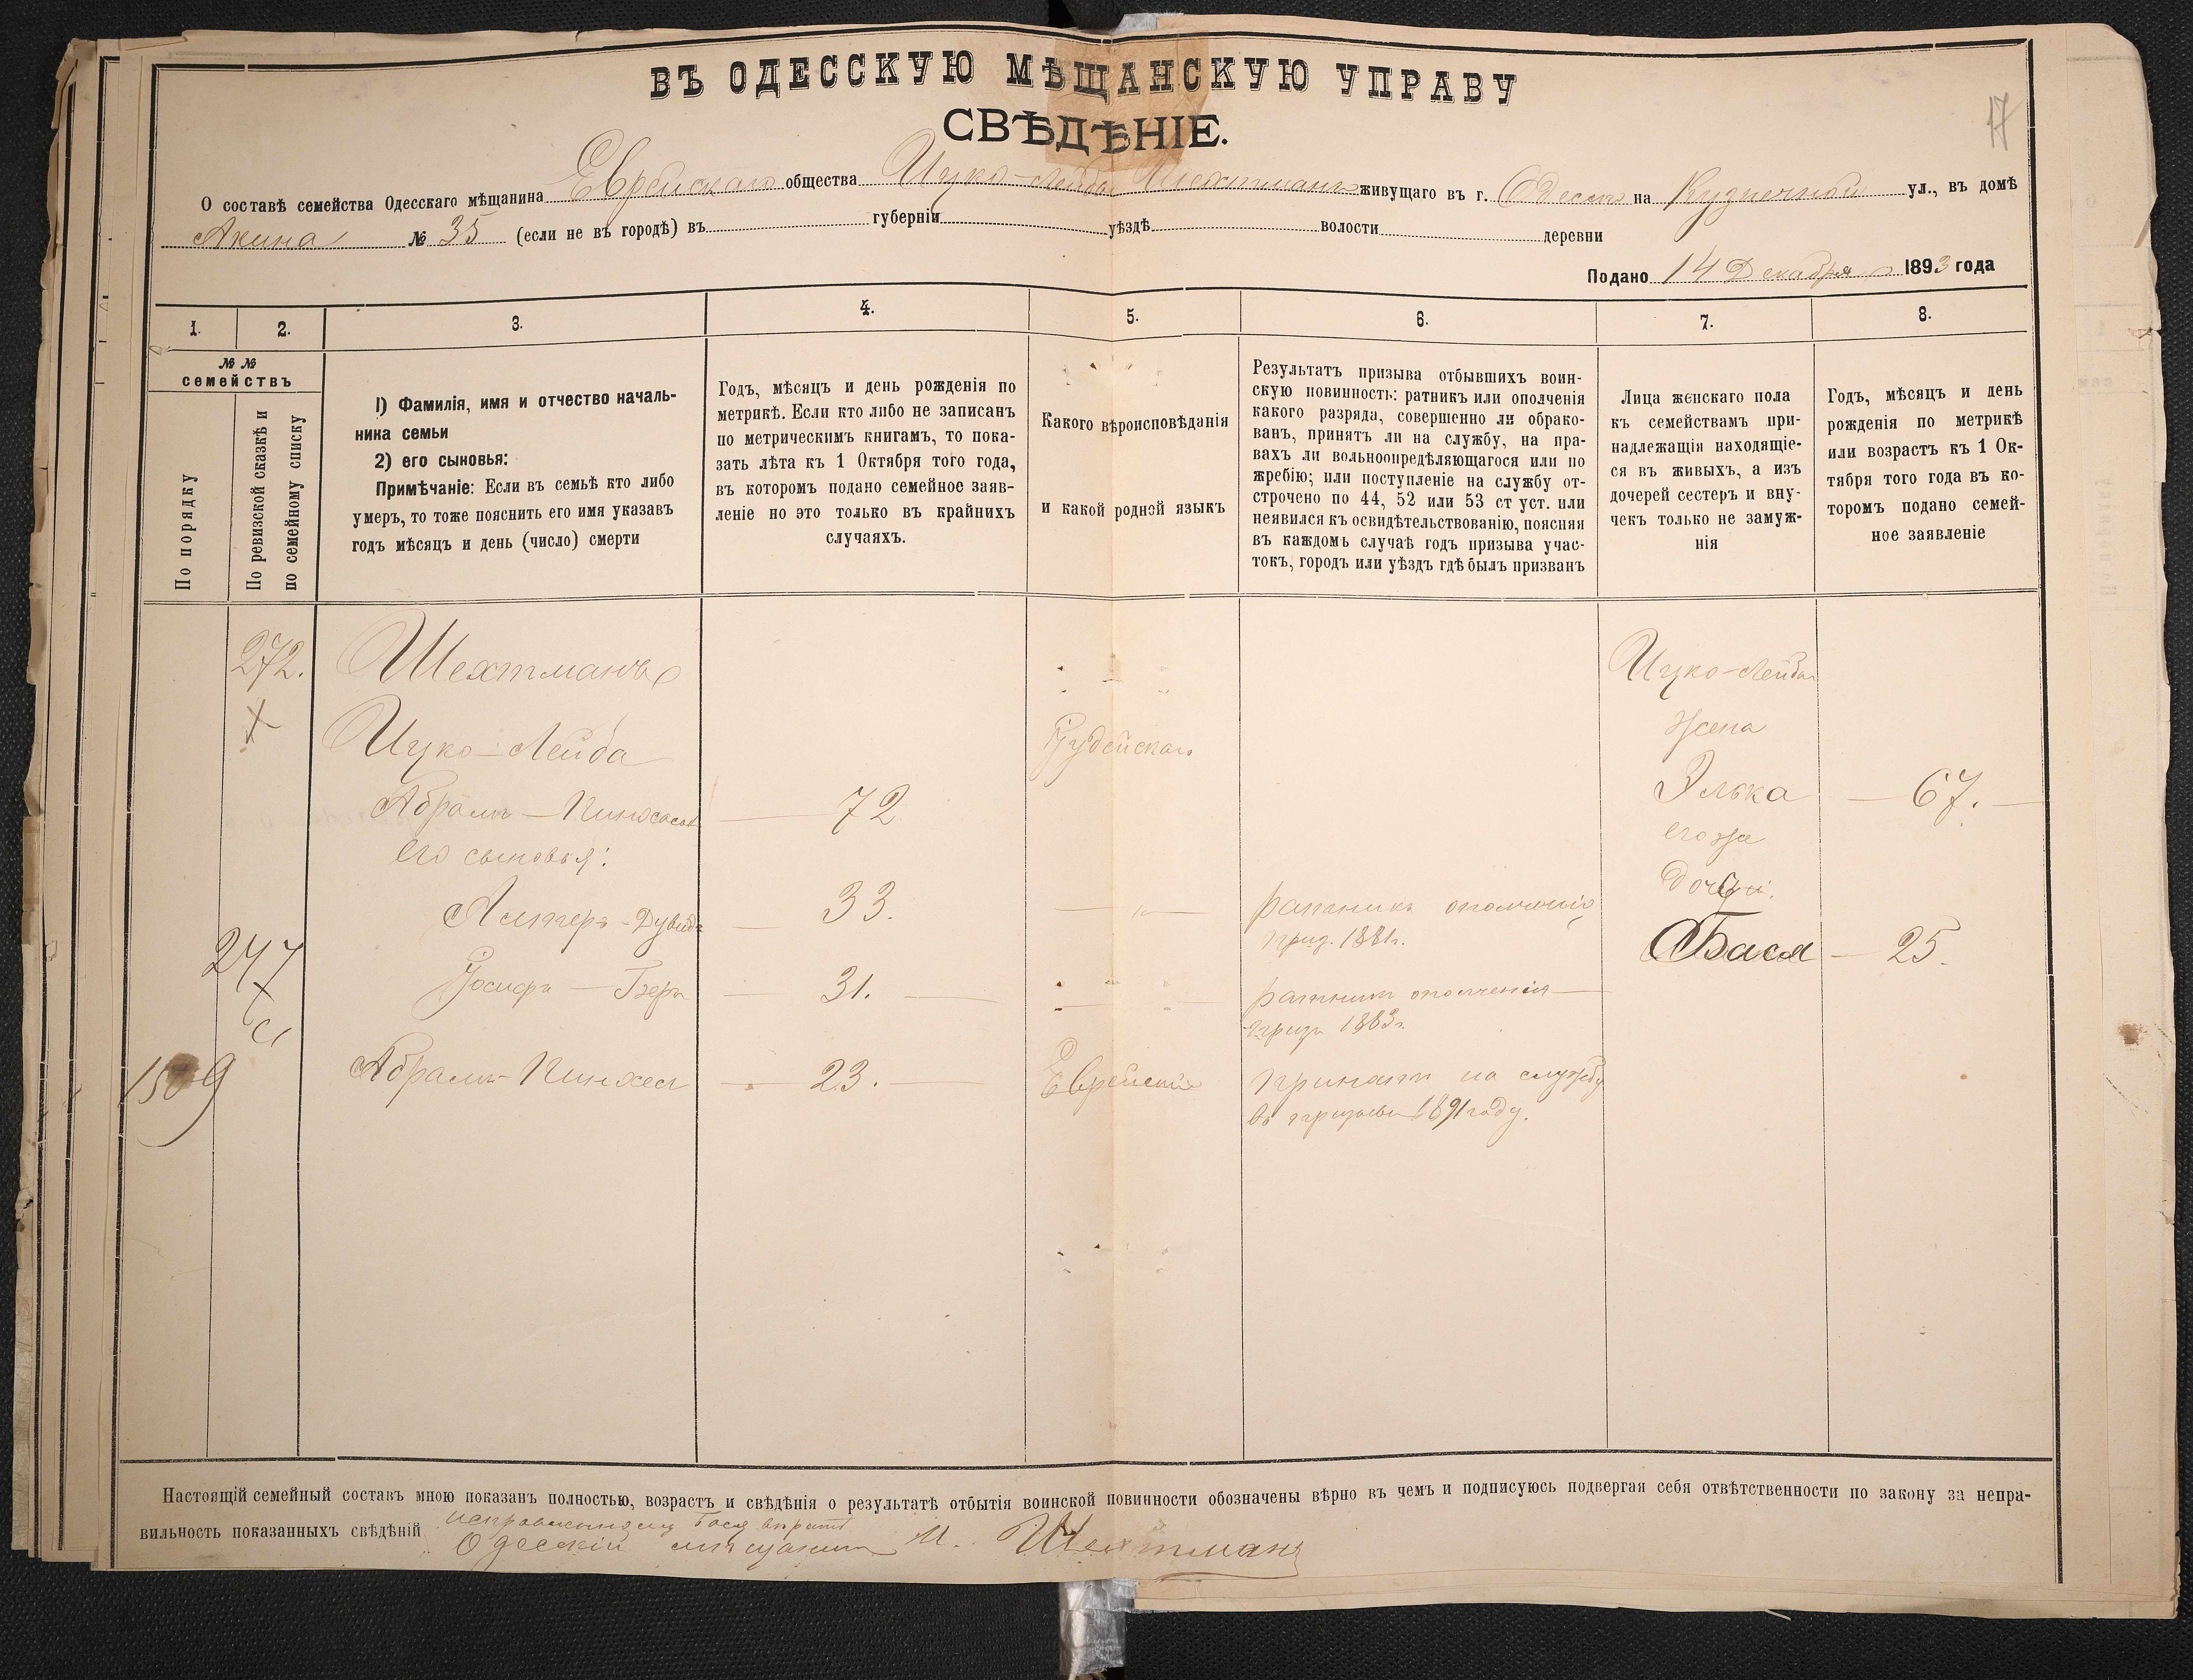 ВЪ ОДЕССКУЮ МѢЩАНСКУЮ УПРАВУ
СВѢДѢНІЕ.
17
О составѣ семейства Одесскаго мѣщанина Еврейскаго общества Ицко-Лейба Шехтманъ живущаго въ г. Одессѣ на Кузнечной ул., въ домѣ
Акина № 35 (если не въ городѣ) въ губерніи уѣздѣ волости деревни
Подано 14 Декабря 1893 года
1. 2. 3. 4. 5. 6. 7. 8.
№ №
семействъ
По порядку
По ревизской сказкѣ и
по семейному списку
1) Фамилія, имя и отчество началь-
ника семьи
2) его сыновья:
Примѣчаніе: Если въ семьѣ кто либо
умеръ, то тоже пояснить его имя указавъ
годъ мѣсяцъ и день (число) смерти
Годъ, мѣсяцъ и день рожденія по
метрикѣ. Если кто либо не записанъ
по метрическимъ книгамъ, то пока-
зать лѣта къ 1 Октября того года,
въ которомъ подано семейное заяв-
леніе но это только въ крайнихъ
случаяхъ.
Какого вѣроисповѣданія
и какой родной языкъ
Результатъ призыва отбывшихъ воин-
скую повинность: ратникъ или ополченія
какого разряда, совершенно ли обрако-
ванъ, принятъ ли на службу, на пра-
вахъ ли вольноопредѣляющагося или по
жребію; или поступленіе на службу от-
строчено по 44, 52 или 53 ст уст. или
неявился къ освидѣтельствованію, поясняя
въ каждомъ случаѣ годъ призыва учас-
токъ, городъ или уѣздъ гдѣ былъ призванъ
Лица женскаго пола
къ семействамъ при-
надлежащія находящіе-
ся въ живыхъ, а изъ
дочерей сестеръ и вну-
чекъ только не замуж-
нія
Годъ, мѣсяцъ и день
рожденія по метрикѣ
или возрастъ къ 1 Ок-
тября того года въ ко-
торомъ подано семей-
ное заявленіе
272. Шехтманъ Ицко-Лейба
Ицко-Лейба Іудейскаго жена
Абрамъ-Пинхасовъ 72 Элька 67.
его сыновья: его же
дочь
Алтеръ-Дувидъ 33. ратникъ ополченія
приз. 1881г. Бася 25.
247
Іосифъ-Геръ 31. ратникъ ополченія
призв 1883г.
1509 Абрамъ-Пинхесъ 23. Еврейскій принятъ на службу
въ призывъ 1891 году.
Настоящій семейный составъ мною показанъ полностью, возрастъ и свѣдѣнія о результатѣ отбытія воинской повинности обозначены вѣрно въ чемъ и подписуюсь подвергая себя отвѣтственности по закону за непра-
вильность показанныхъ свѣдѣній
Одесскій мѣщанинъ И. Шехтманъ